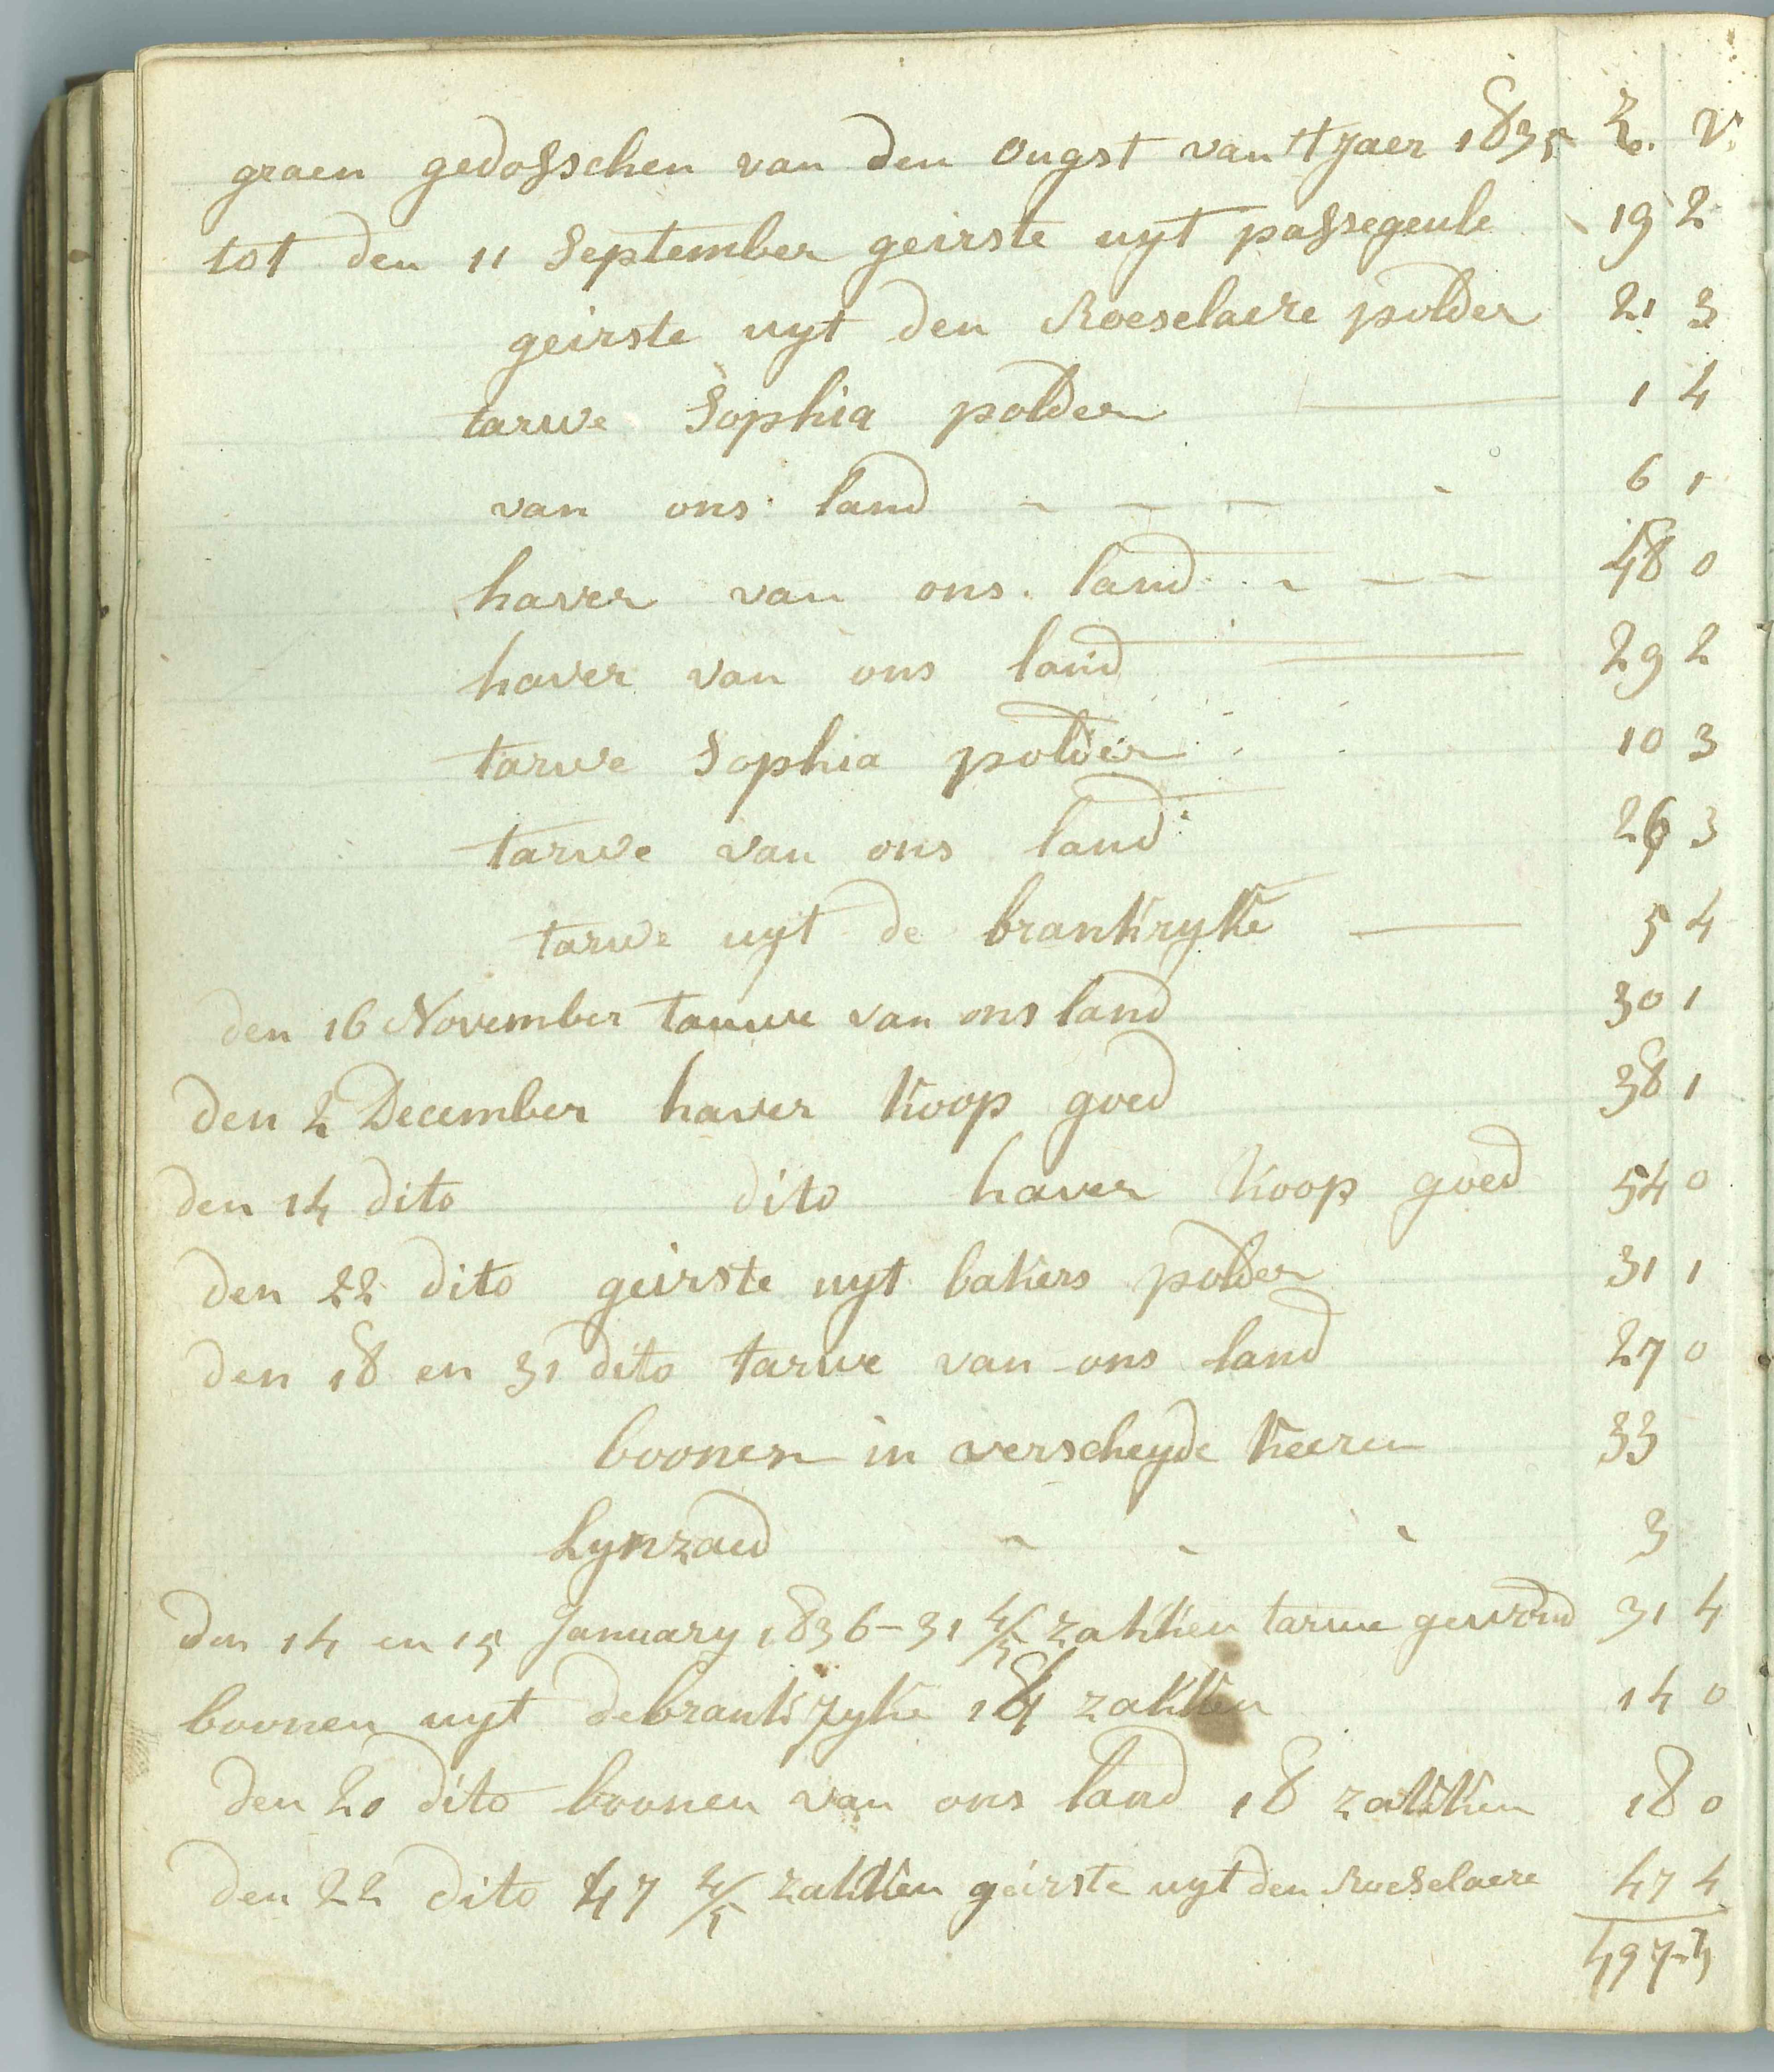 graen gedosschen van den ougst van tjaer 1835 Z. V.
tot den 11 September geirste uyt passegeule 19 2
geirste uyt den Roeselaere polder 21 3
tarwe Sophia polder 1 4
van ons land 6 1
haver van ons land 48 0
haver van ons land 29 2
tarwe Sophia polder 10 3
tarwe van ons land 26 3
tarwe uyt de brankryke 5 4
den 16 November tarwe van ons land 30 1
den 2 December haver koop goed 38 1
den 14 dito dito haver koop goed 54 0
den 22 dito geirste uyt bakers polder 31 1
den 18 en 31 dito tarwe van ons land 27 0
boonen in verscheyde keeren 33
Lynzaed 3
den 14 en 15 January 1836 - 31 4/5 zakken tarwe 31 4
boonen uyt de brankryke 14 zakken 14 0
den 20 dito boonen van ons land 18 zakken 18 0
den 22 dito 47 4/5 zakken geirste uyt den Roeselaere 47 4
497-